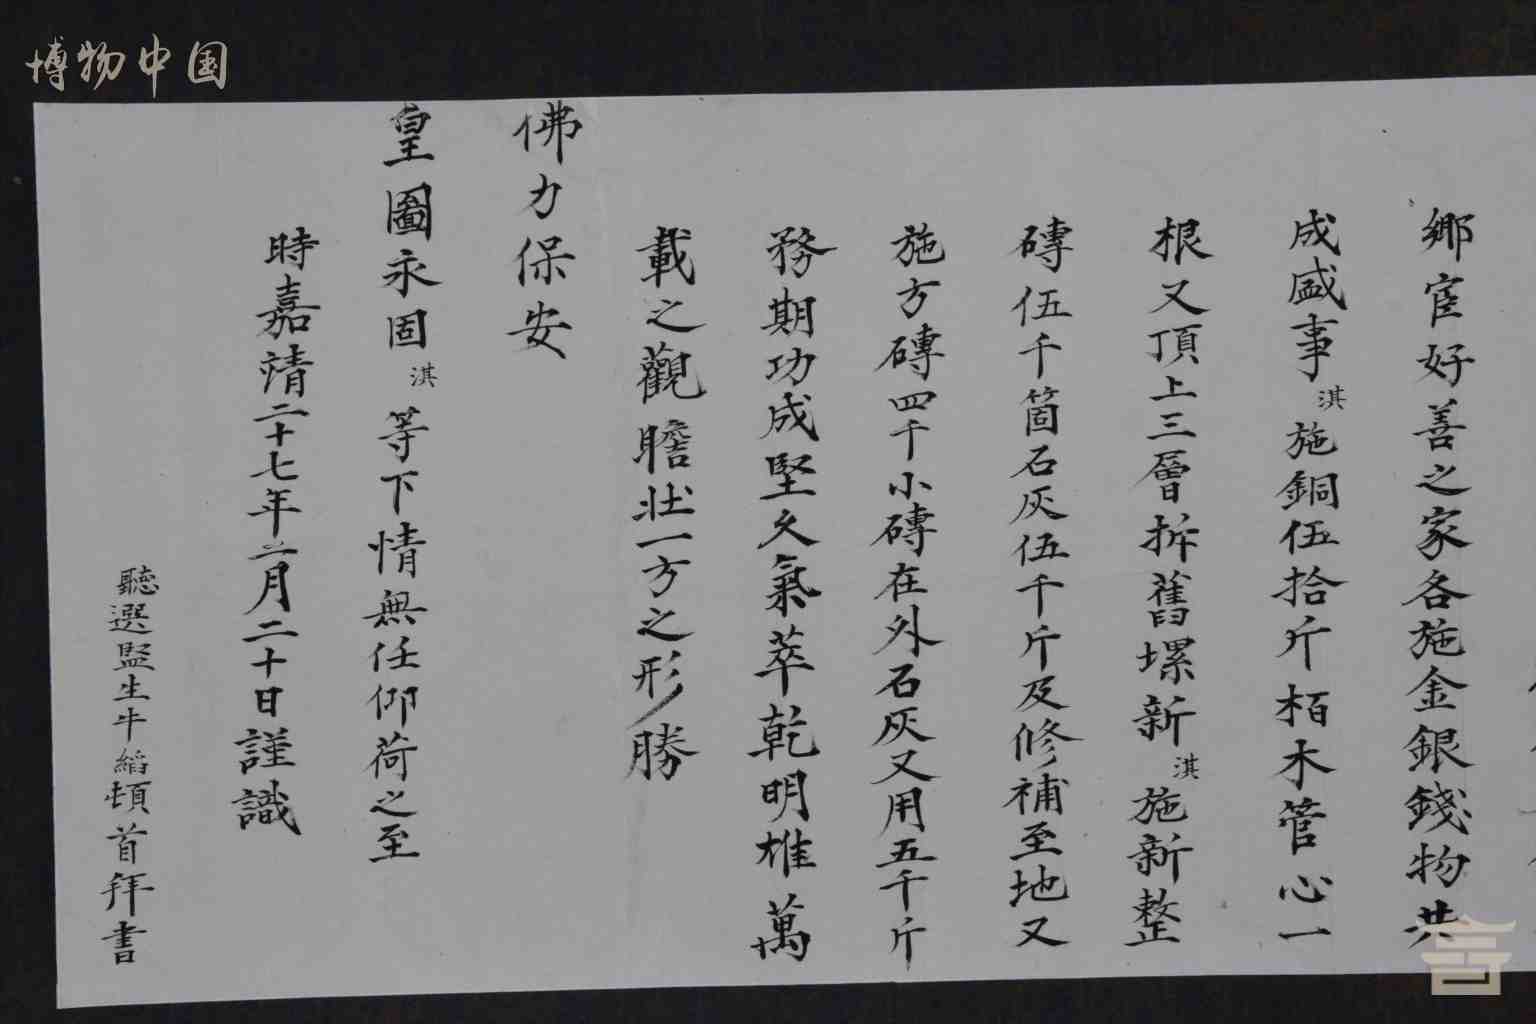 博物中国
鄉宦好善之家各施金銀錢物共
成盛事淇施銅伍拾斤栢木管心一
根又頂上三層拆舊塿新淇施新整
磚伍千箇石灰伍千斤及修補至地又
施方磚四千小磚在外石灰又用五千斤
務期功成堅久氣萃乾明雄萬
載之觀瞻壯一方之形勝
佛力保安
皇圖永固淇等下情無任仰荷之至
時嘉靖二十七年二月二十日謹識
聽選監生牛縚頓首拜書